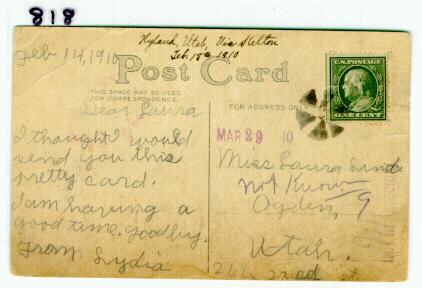 818
Feb 14, 1910
Hyland, Utah, Via Kelton
Feb. 15th 1910
Post Card
THIS SPACE MAY BE USED
FOR CORRESPONDENCE.
FOR ADDRESS ONLY
U.S. POSTAGE
ONE CENT
Dear Laura
I thought I would
send you this
pretty card.
I am having a
good time. Good by.
From Lydia
MAR 29 10
Miss Laura
not Known
Ogden,
Utah.
22nd st